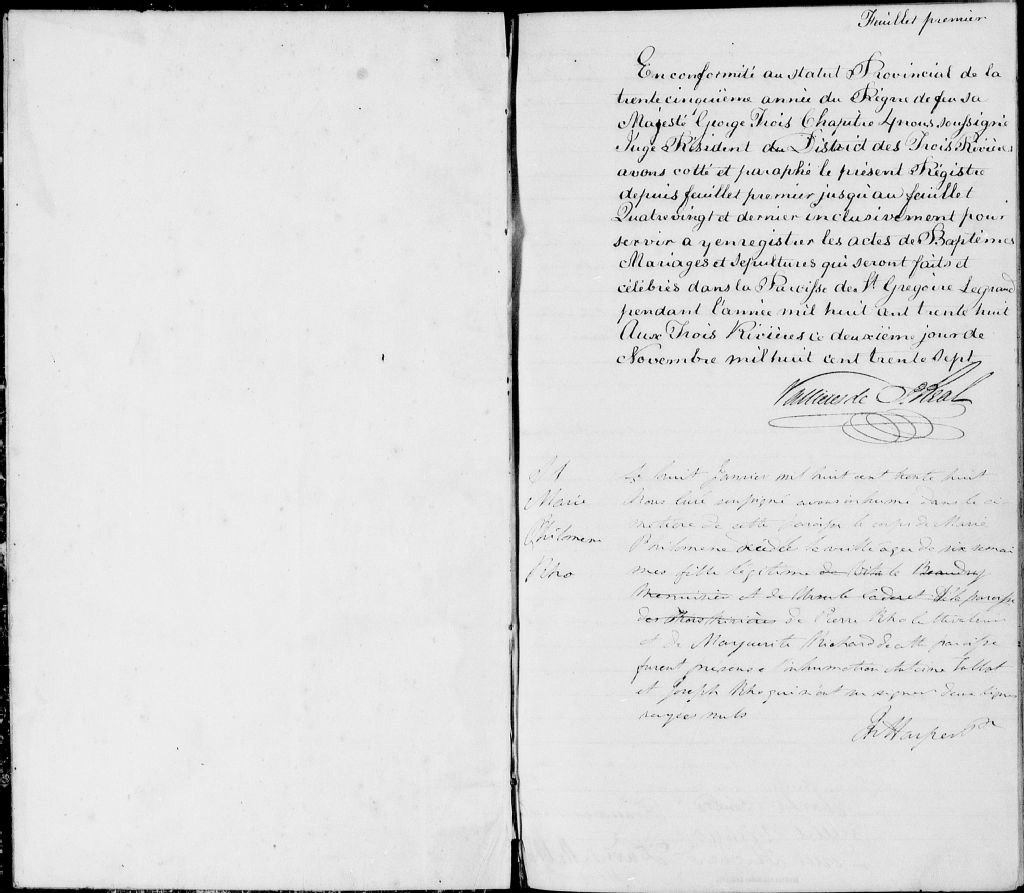 Feuillet premier
En conformité au statut Provincial de la
trente cinquième année du Règne de feu sa
Majesté George Trois Chapitre 4 nous soussigné
Juge Résident du District des Trois Rivières
avons cotté et paraphé le présent Régistre
depuis feuillet premier jusqu'au feuillet
Quatrevingt et dernier inclusivement pour
servir a y enregistrer les actes de Baptêmes
Mariages et sépultures qui seront faits et
célébrés dans la Paroisse de St Grégoire Legrand
pendant l'année mil huit cent trente huit
Aux Trois Rivières ce deuxième jour de
Novembre mil huit cent trente sept
Vallieres de St Real
S 1
Marie
Philomene
Rho
Le huit Janvier mil huit cent trente huit
Nous Curé soussigné avons inhumé dans le ci
metiere de cette paroisse le corps de Marie
Philomene décédée la veille agée de six semai
nes fille légitime Beaudry
Menuisier et de Ursule Cadoret de la paroisse
des Trois Rivières de Pierre Rho Cultivateur
et de Marguerite Richard de cette paroisse
furent presens a l'inhumation Antoine
et Joseph Rho qui n'ont su signer deux lignes
rayées nuls
Harper Ptr